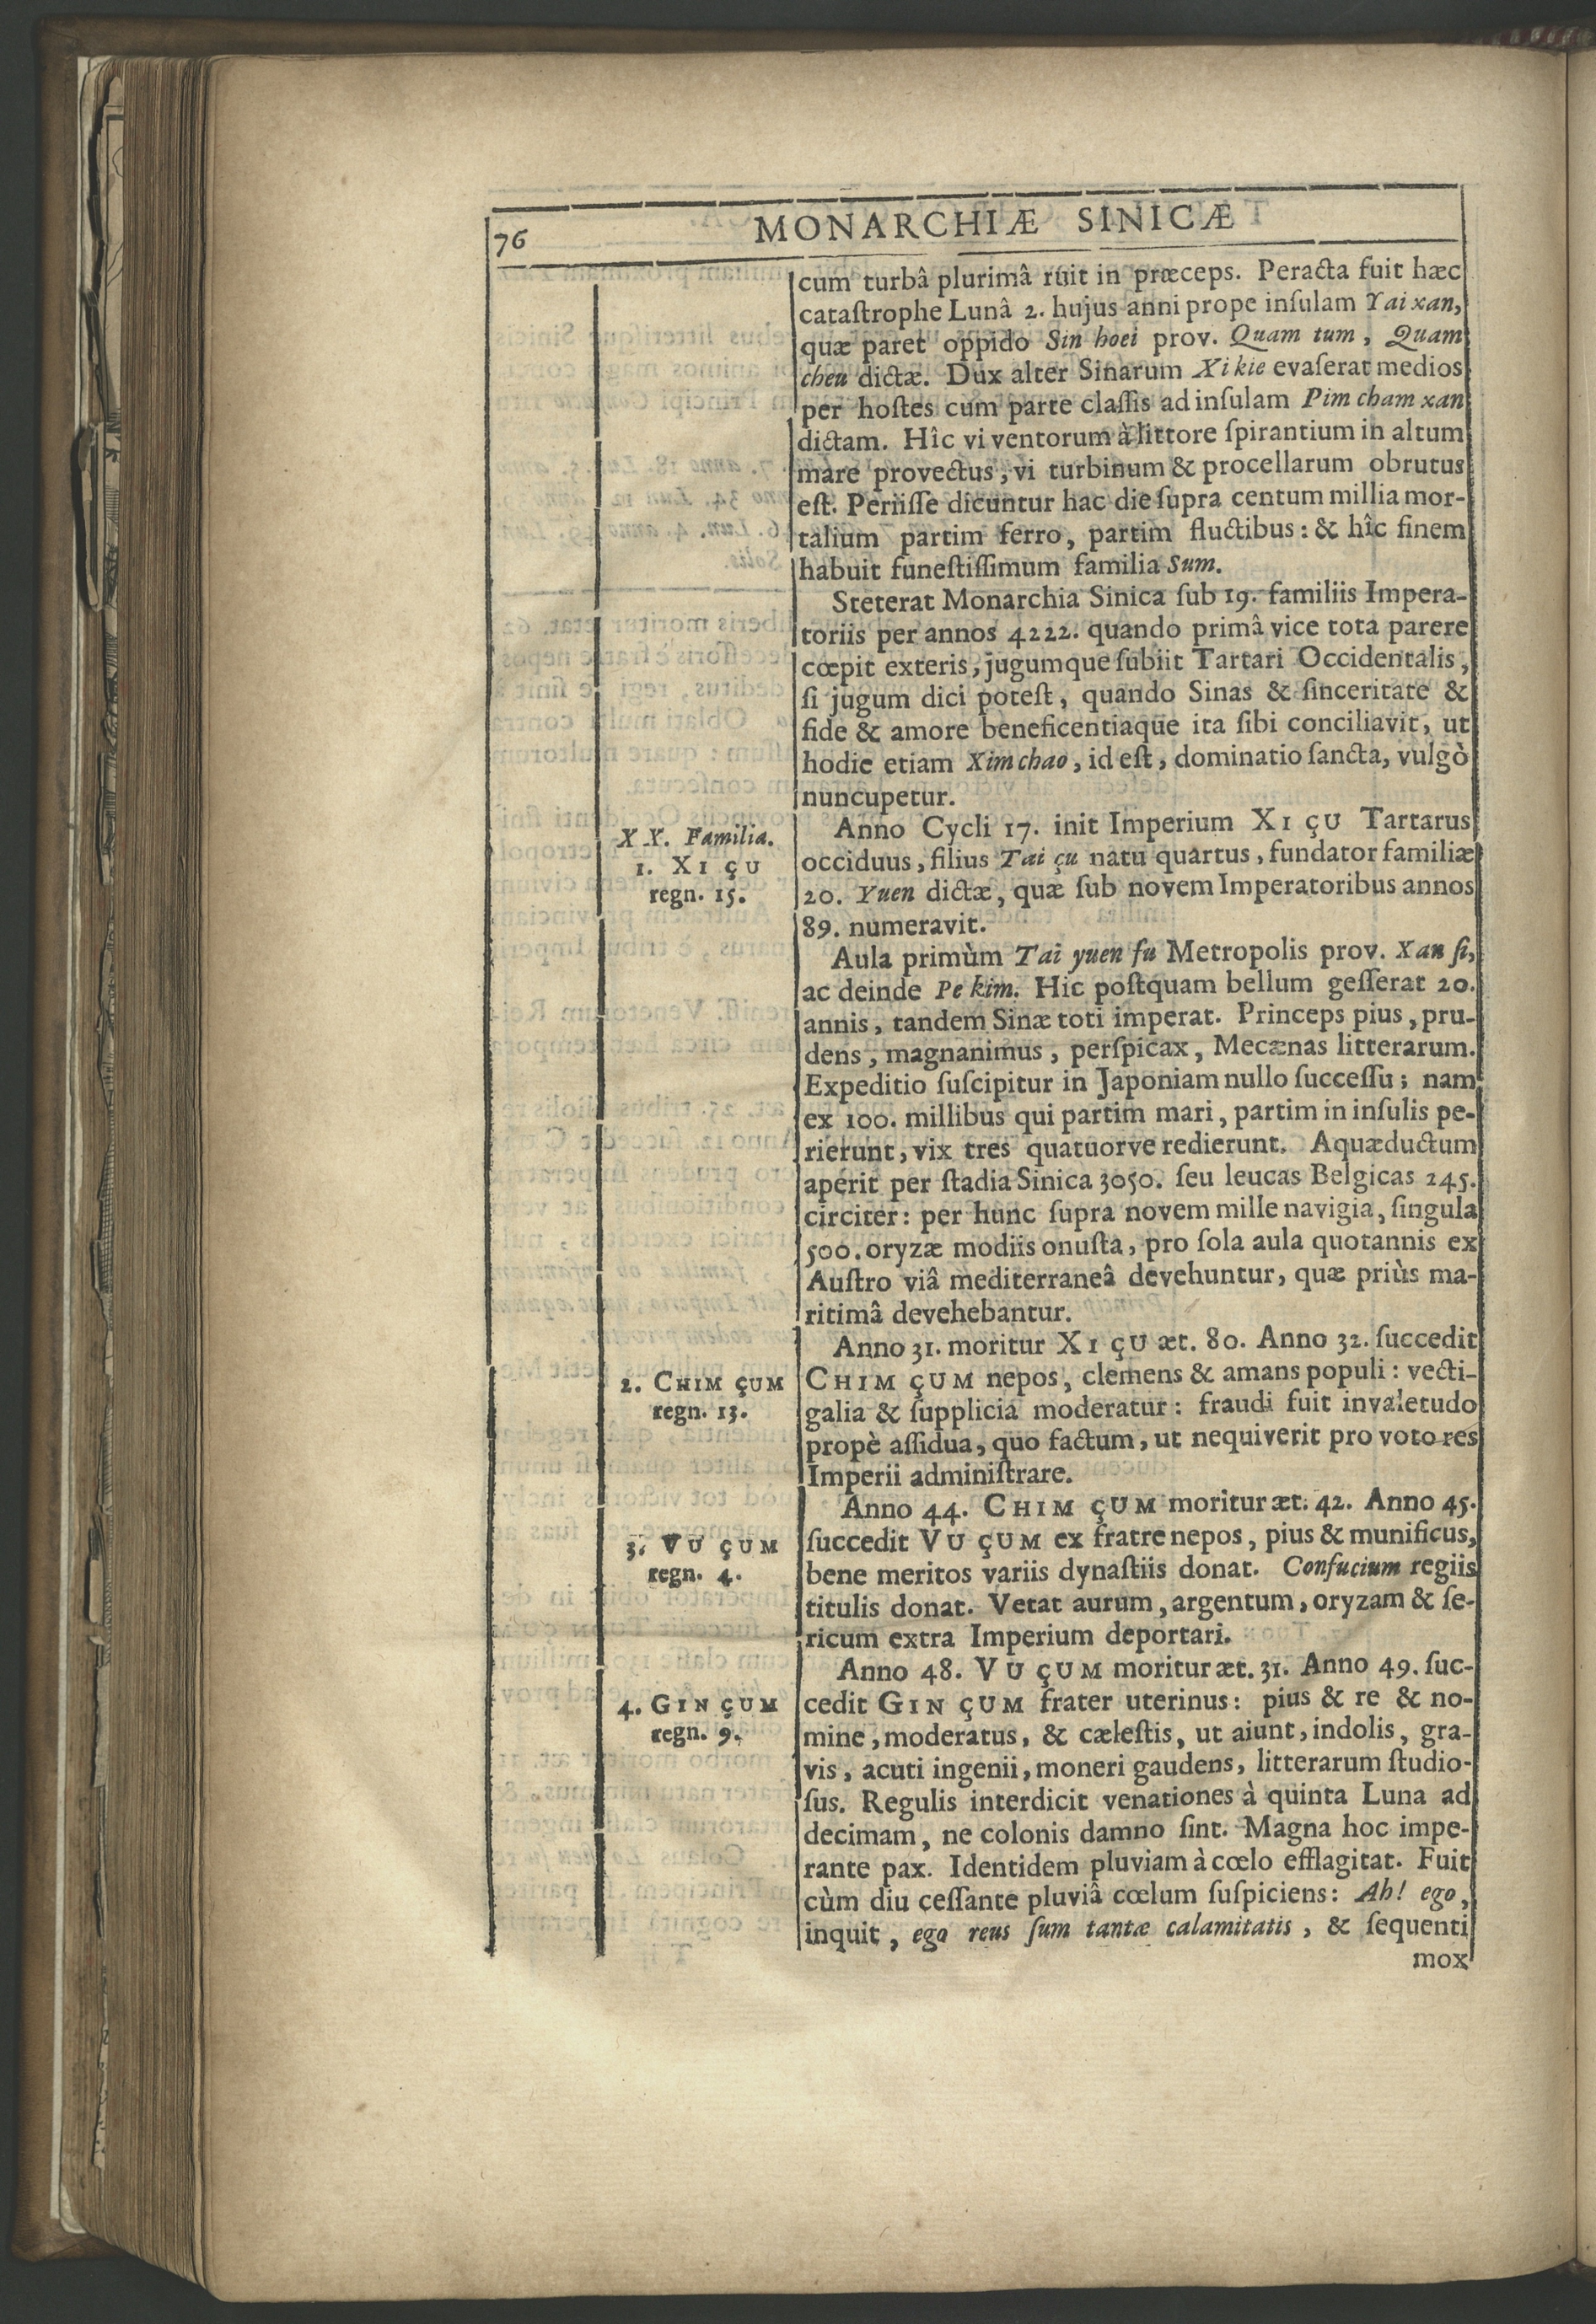 76
MONARCHIÆ SINICÆ
cum turbâ plurimâ ruit in præceps. Peracta fuit hæc
cataſtrophe Lunâ 2. hujus anni prope inſulam Yai xan,
quæ paret oppido Sin hoei prov. Quam tum, Quam
cheu dictæ. Dux alter Sinarum Xi kie evaſerat medios
per hoſtes cum parte claſſis ad inſulam Pim cham xan
dictam. Hîc vi ventorum à littore ſpirantium in altum
mare provectus, vi turbinum & procellarum obrutus
eſt. Periiſſe dicuntur hac die ſupra centum millia mor-
talium partim ferro, partim fluctibus: & hîc finem
habuit funeſtiſſimum familia Sum.
Steterat Monarchia Sinica ſub 19. familiis Impera-
toriis per annos 4222. quando primâ vice tota parere
cœpit exteris, jugumque ſubiit Tartari Occidentalis,
ſi jugum dici poteſt, quando Sinas & ſinceritate &
fide & amore beneficentiaque ita ſibi conciliavit, ut
hodie etiam Xim chao, id eſt, dominatio ſancta, vulgò
nuncupetur.
XX. Familia.
1. XI ÇU
regn. 15.
Anno Cycli 17. init Imperium XI ÇU Tartarus
occiduus, filius Tai çu natu quartus, fundator familiæ
20. Yuen dictæ, quæ ſub novem Imperatoribus annos
89. numeravit.
Aula primùm Tai yuen fu Metropolis prov. Xan ſi,
ac deinde Pe kim. Hic poſtquam bellum geſſerat 20.
annis, tandem Sinæ toti imperat. Princeps pius, pru-
dens, magnanimus, perſpicax, Mecænas litterarum.
Expeditio ſuſcipitur in Japoniam nullo ſucceſſu; nam
ex 100. millibus qui partim mari, partim in inſulis pe-
rierunt, vix tres quatuorve redierunt. Aquæductum
aperit per ſtadia Sinica 3050. ſeu leucas Belgicas 245.
circiter: per hunc ſupra novem mille navigia, ſingula
500. oryzæ modiis onuſta, pro ſola aula quotannis ex
Auſtro viâ mediterraneâ devehuntur, quæ priùs ma-
ritimâ devehebantur.
Anno 31. moritur XI ÇU æt. 80. Anno 32. ſuccedit
2. CHIM ÇUM
regn. 13.
CHIM ÇUM nepos, clemens & amans populi: vecti-
galia & ſupplicia moderatur: fraudi fuit invaletudo
propè aſſidua, quo factum, ut nequiverit pro voto res
Imperii adminiſtrare.
Anno 44. CHIM ÇUM moritur æt. 42. Anno 45.
3. VU ÇUM
regn. 4.
ſuccedit VU ÇUM ex fratre nepos, pius & munificus,
bene meritos variis dynaſtiis donat. Confucium regiis
titulis donat. Vetat aurum, argentum, oryzam & ſe-
ricum extra Imperium deportari.
Anno 48. VU ÇUM moritur æt. 31. Anno 49. ſuc-
4. GIN ÇUM
regn. 9.
cedit GIN ÇUM frater uterinus: pius & re & no-
mine, moderatus, & cæleſtis, ut aiunt, indolis, gra-
vis, acuti ingenii, moneri gaudens, litterarum ſtudio-
ſus. Regulis interdicit venationes à quinta Luna ad
decimam, ne colonis damno ſint. Magna hoc impe-
rante pax. Identidem pluviam à cœlo efflagitat. Fuit
cùm diu ceſſante pluviâ cœlum ſuſpiciens: Ah! ego,
inquit, ego reus ſum tantæ calamitatis, & ſequenti
mox